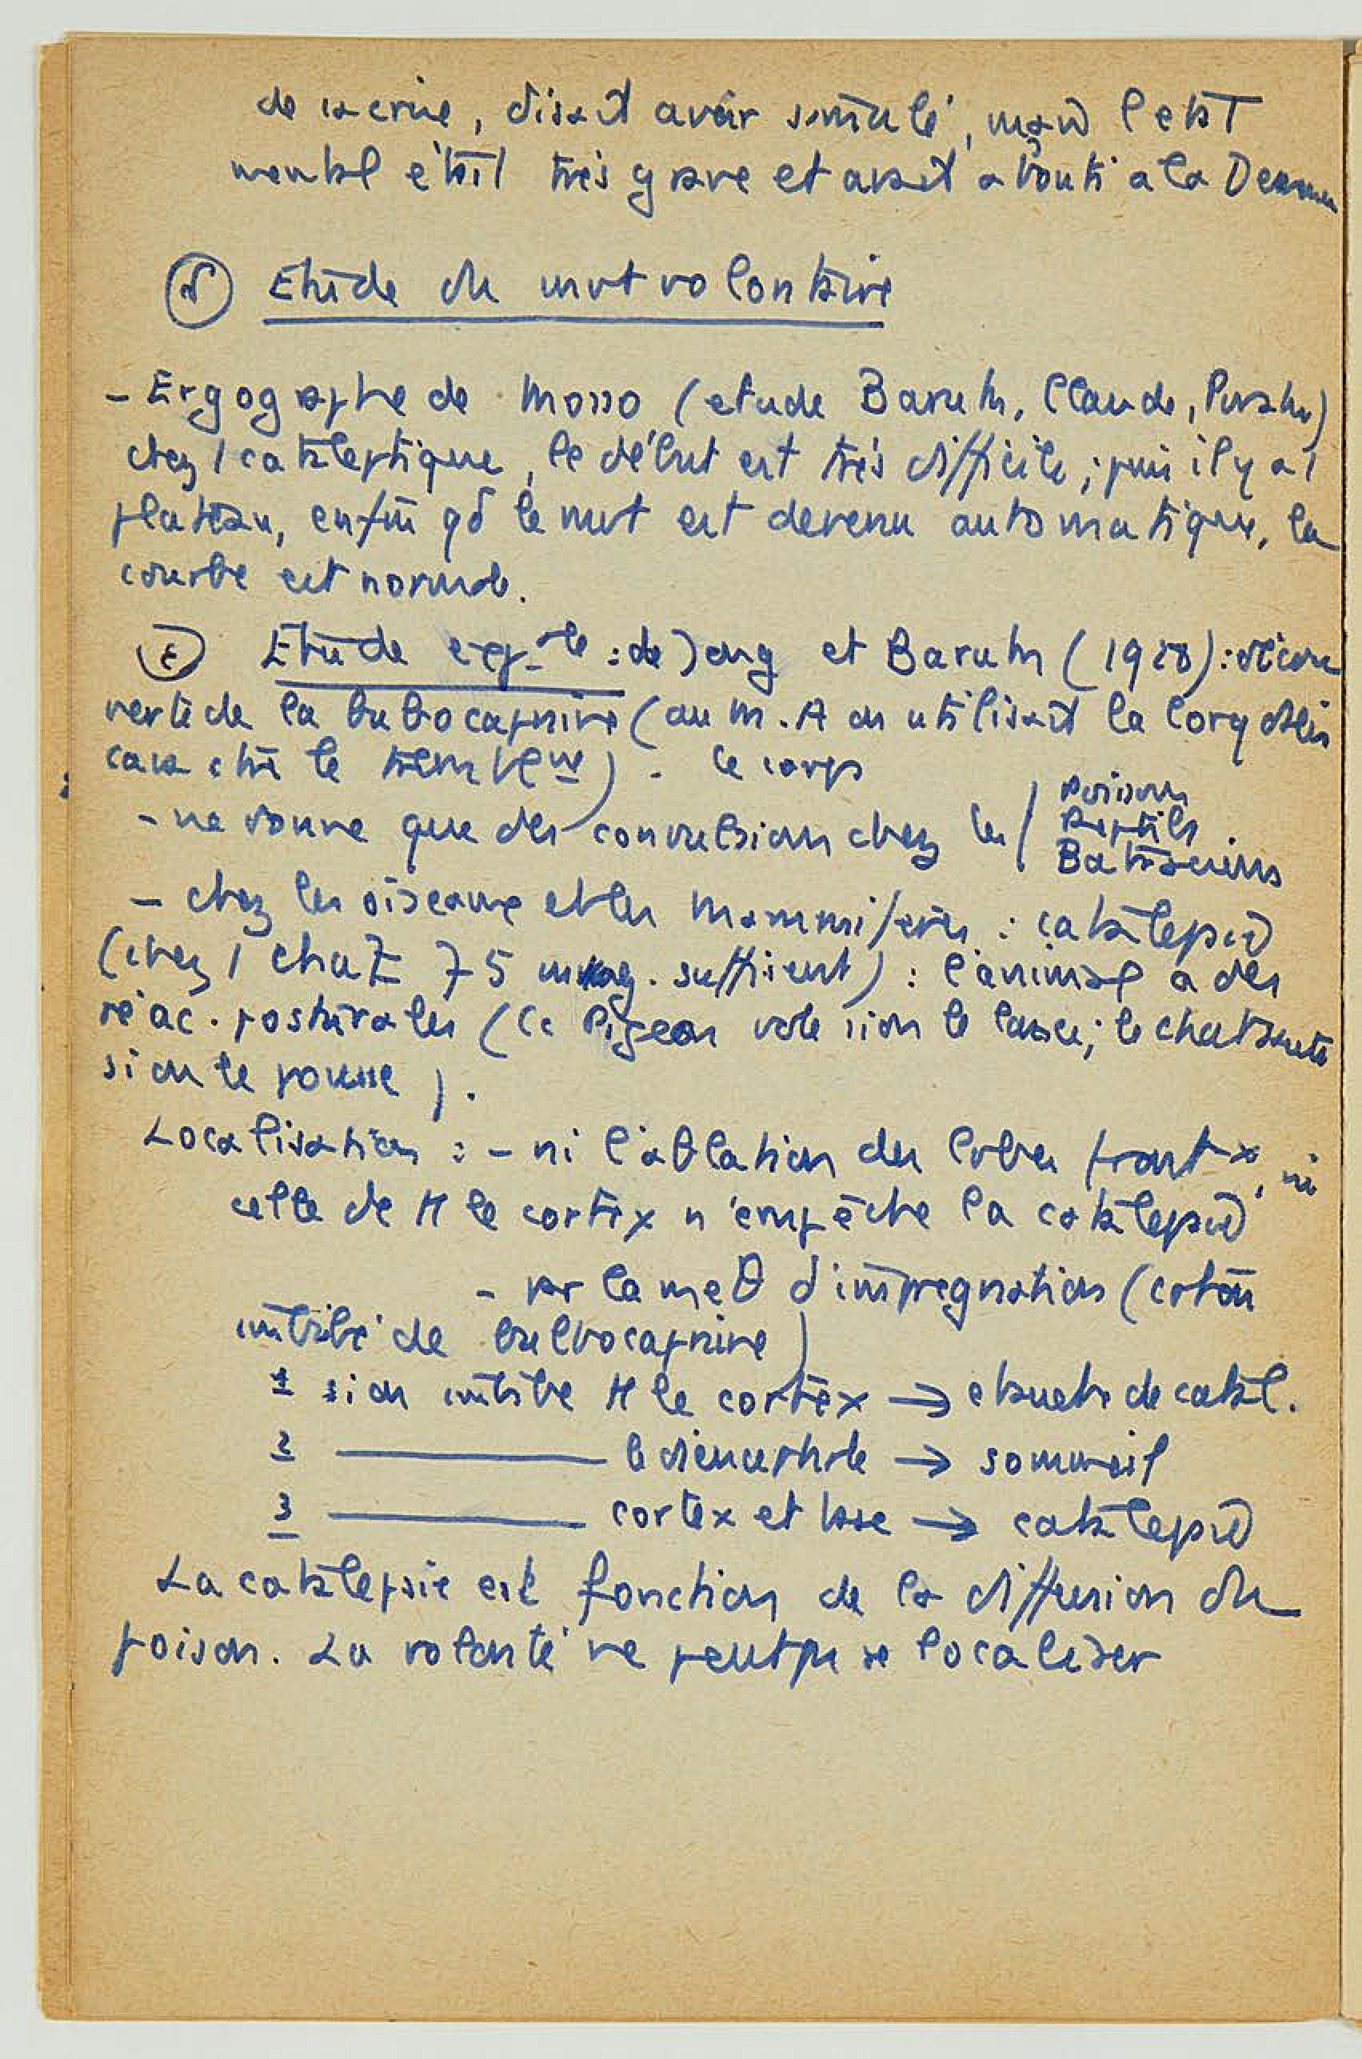 de sa crise, disait avoir simulé, mais l'etat
mental était très grave et avait abouti a la Demence
δ Etude du mvt volontaire
- Ergographe de Mosso (etude Baruk, Claude,
chez 1 cataleptique, le début est très difficile ; puis il y a 1
plateau, enfin qd le mvt est devenu automatique, la
courbe est normale.
ε Etude exp-tale : de Jong et Baruk (1928) : décou
verte de la bulbocapnine (au M.A on utilisait la Corydalis
cava chx le
- ne donne que des convulsions chez les / Poissons
Reptiles
Batraciens
- chez les oiseaux et les mammifères : catalepsie
(chez 1 chat 75 mmg. suffisent) : l'animal a des
réac. posturales (le Pigeon vole si on le lance ; le chat saute
si on le pousse).
Localisation : - ni l'ablation des lobes frontx, ni
celle de tt le cortex n'empêche la catalepsie
- par la meθ d'impregnation (coton
imbibé de bulbocapnine)
1 si on imbibe tt le cortex → ebauche de catal.
2 ——— le diencephale → sommeil
3 ——— cortex et base → catalepsie
La catalepsie est fonction de la diffusion du
poison. La volonté ne peut pas se localiser